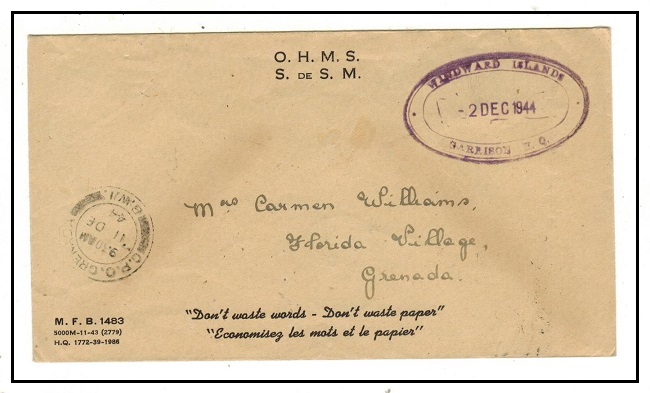 O. H. M. S.
S. DE S. M.
WINDWARD ISLANDS
-2 DEC 1944
GARRISON H. Q.
Mrs Carmen Williams,
Florida Village,
Grenada.
G.P.O. GRENADA
B.W.I.
9:30 AM
11 DE
44
M. F. B. 1483
5000M-11-43 (2779)
H.Q. 1772-39-1986
"Don't waste words - Don't waste paper"
"Economisez les mots et le papier"